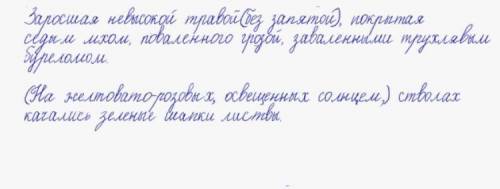 Заросшая невысокой травой(без запятой), покрытая
седым мхом, поваленного грозой, заваленными трухлявым
буреломом.
(На желтовато-розовых, освещенных солнцем,) стволах
качались зеленые шапки листвы.